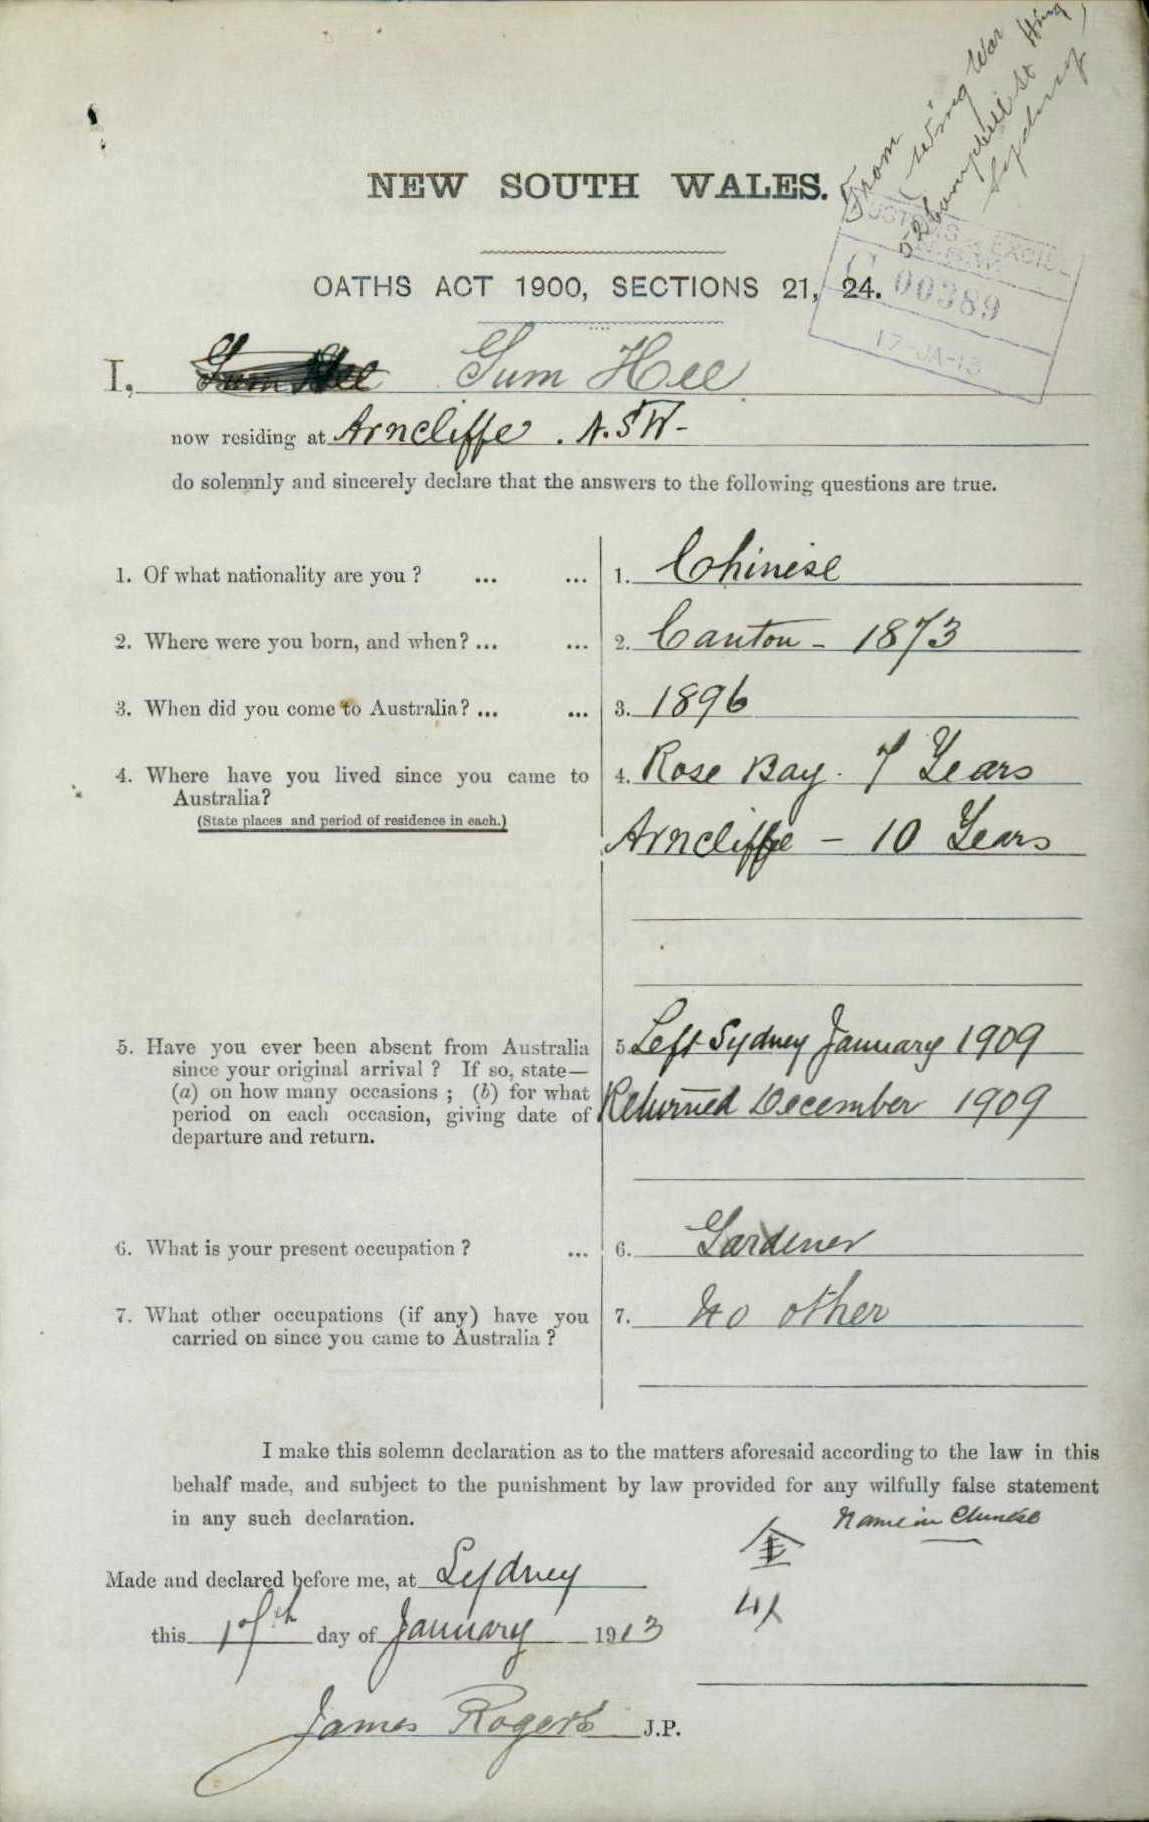 From
Wing War Hing
52 Campbell St
Sydney
NEW SOUTH WALES.
OATHS ACT 1900, SECTIONS 21, 24.
CUSTOMS & EXCISE
C 00389
17-JA-13
I, Gum Hee Gum Hee
now residing at Arncliffe. N.S.W-
do solemnly and sincerely declare that the answers to the following questions are true.
1. Of what nationality are you ? ... ... 1. Chinese
2. Where were you born, and when? ... ... 2. Canton - 1873
3. When did you come to Australia? ... ... 3. 1896
4. Where have you lived since you came to 4. Rose Bay. 7 Years
Australia?
(State places and period of residence in each.)
Arncliffe - 10 Years
5. Have you ever been absent from Australia 5. Left Sydney January 1909
since your original arrival ? If so, state—
(a) on how many occasions ; (b) for what Returned December 1909
period on each occasion, giving date of
departure and return.
6. What is your present occupation ? ... 6. Gardener
7. What other occupations (if any) have you 7. No other
carried on since you came to Australia ?
I make this solemn declaration as to the matters aforesaid according to the law in this
behalf made, and subject to the punishment by law provided for any wilfully false statement
in any such declaration.
Name in Chinese
金
Made and declared before me, at Sydney
this 17th day of January 1913
James Rogers J.P.